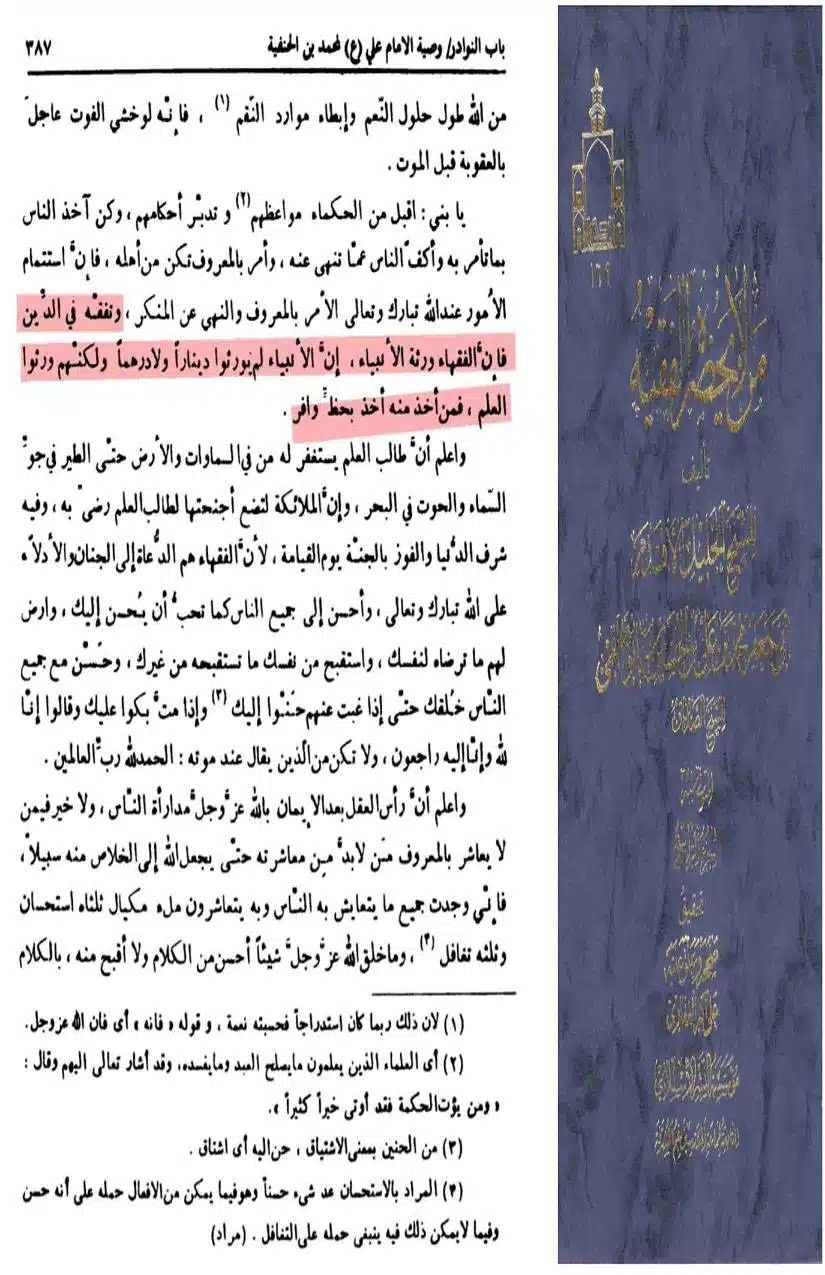 باب النوادر/ وصية الامام علي (ع) لمحمد بن الحنفية ٣٨٧
من الله طول حلول النّعم وإبطاء موارد النّقم (١) ، فإنّه لو خشي الفوت عاجلَ
بالعقوبة قبل الموت .
يا بني : اقبل من الحكماء مواعظهم (٢) وتدبّر أحكامهم ، وكن آخذ الناس
بما تأمر به وأكفّ الناس عمّا تنهى عنه ، وأمر بالمعروف تكن من أهله ، فإنَّ استتمام
الاُمور عند الله تبارك وتعالى الأمر بالمعروف والنهي عن المنكر ، وتفقّه في الدِّين
فإنَّ الفقهاء ورثة الأنبياء ، إنَّ الأنبياء لم يورثوا ديناراً ولا درهماً ولكنّهم ورثوا
العلم ، فمن أخذ منه أخذ بحظّ وافر .
واعلم أنَّ طالب العلم يستغفر له من في السماوات والأرض حتّى الطير في جوِّ
السّماء والحوت في البحر ، وإنَّ الملائكة لتضع أجنحتها لطالب العلم رضىً به ، وفيه
شرف الدُّنيا والفوز بالجنّة يوم القيامة ، لأنَّ الفقهاء هم الدُّعاة إلى الجنان والأدلّاء
على الله تبارك وتعالى ، وأحسن إلى جميع الناس كما تحبُّ أن يُحسن إليك ، وارض
لهم ما ترضاه لنفسك ، واستقبح من نفسك ما تستقبحه من غيرك ، وحسّن مع جميع
النّاس خُلقك حتّى إذا غبت عنهم حنّوا إليك (٣) وإذا متَّ بكوا عليك وقالوا إنّا
لله وإنّا إليه راجعون ، ولا تكن من الّذين يقال عند موته : الحمد لله ربِّ العالمين .
واعلم أنَّ رأس العقل بعد الإيمان بالله عزَّ وجلَّ مداراة النّاس ، ولا خير فيمن
لا يعاشر بالمعروف من لابدَّ من معاشرته حتّى يجعل الله إلى الخلاص منه سبيلاً ،
فإنّي وجدت جميع ما يتعايش به النّاس وبه يتعاشرون ملء مكيال ثلثاه استحسان
وثلثه تغافل (٤) ، وما خلق الله عزَّ وجلَّ شيئاً أحسن من الكلام ولا أقبح منه ، بالكلام
(١) لان ذلك ربما كان استدراجاً فحسبته نعمة ، و قوله « فانه » أى فان الله عزوجل.
(٢) أى العلماء الذين يعلمون مايصلح العبد ومايفسده، وقد أشار تعالى اليهم وقال :
« ومن يؤت الحكمة فقد أوتى خيراً كثيراً ».
(٣) من الحنين بمعنى الاشتياق ، حن اليه أى اشتاق .
(٤) المراد بالاستحسان عد شىء حسناً وهو فيما يمكن من الافعال حمله على أنه حسن
وفيما لا يمكن ذلك فيه ينبغى حمله على التغافل . (مراد)
١٢٩
من لا يحضره الفقيه
تأليف
للشيخ الجليل الأقدم
الشيخ الصدوق
تحقيق
علي أكبر الغفاري
مؤسسة النشر الإسلامي